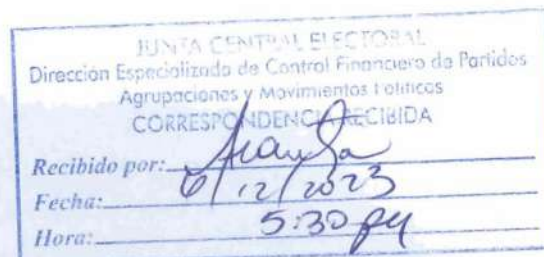 JUNTA CENTRAL ELECTORAL
Dirección Especializada de Control Financiero de Partidos
Agrupaciones y Movimientos Políticos
CORRESPONDENCIA RECIBIDA
Recibido por:
Fecha: 6/12/2023
Hora: 5:30 pm